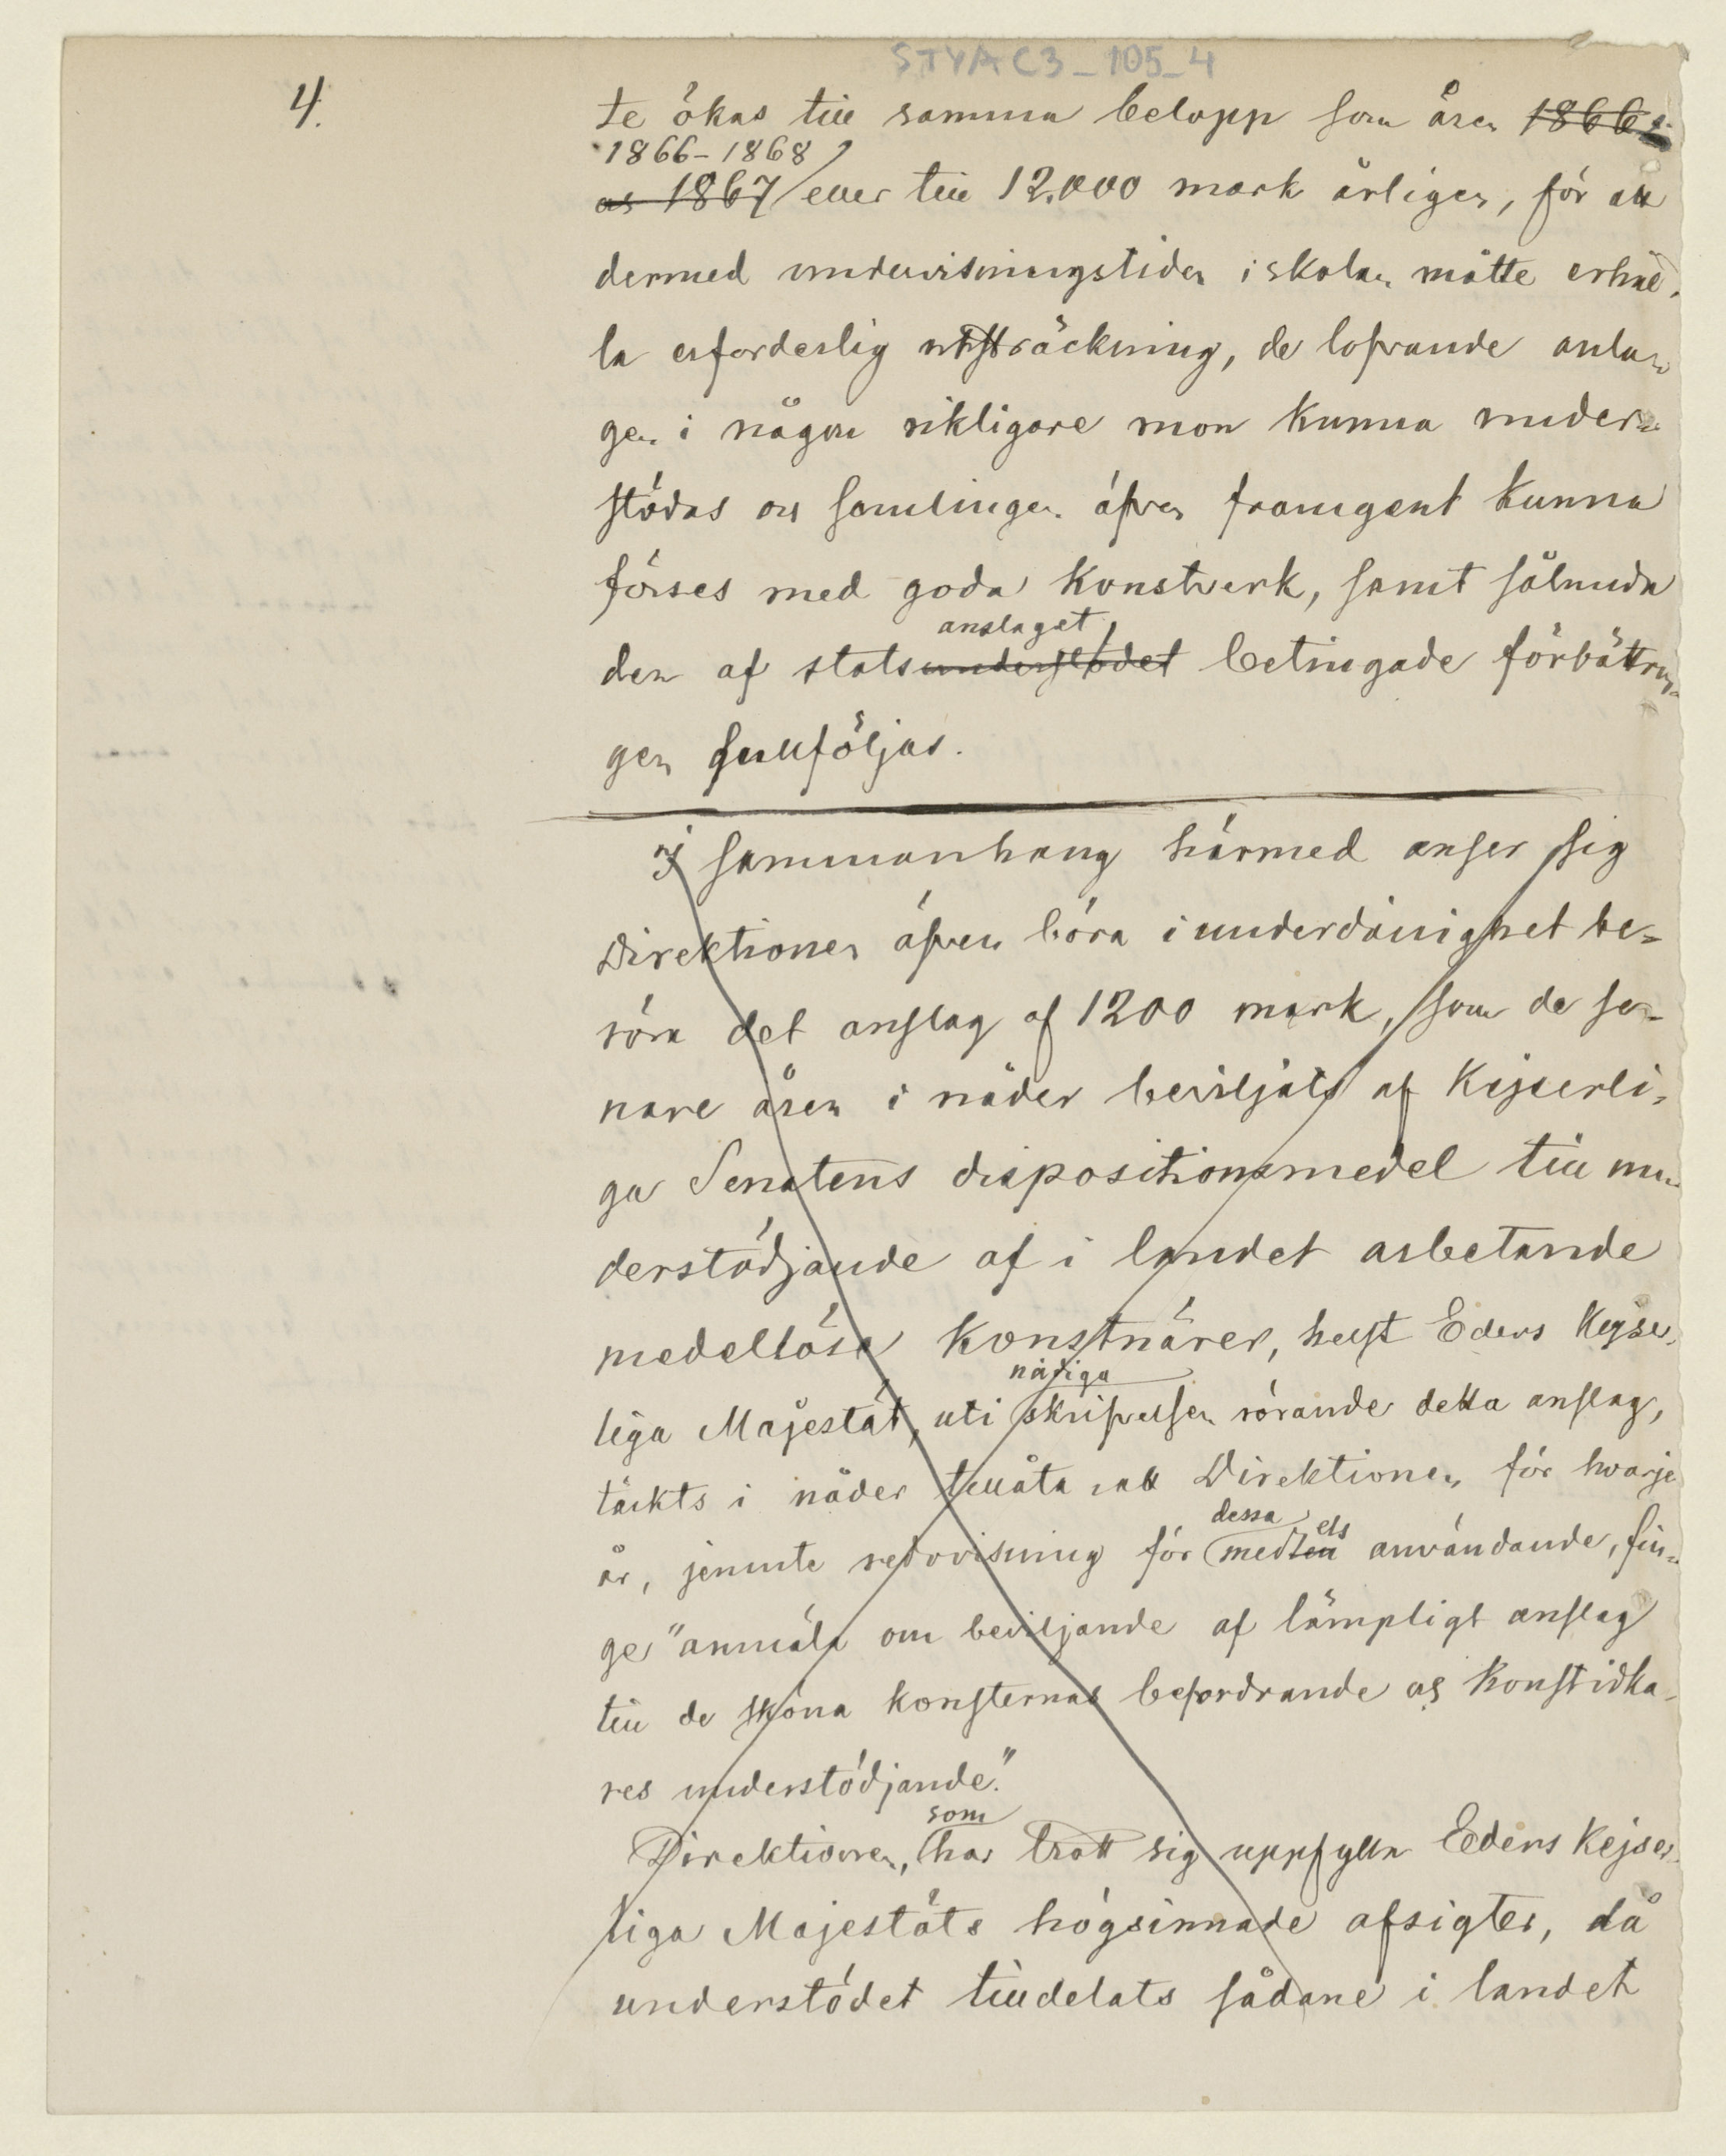 STYA C3_105_4
4.
te ökas till samma belopp som åren 1866
1866-1868
och 1867 eller till 12.000 mark årligen, för att
dermed undervisningstiden i skolan måtte erhål-
la erforderlig utsträckning, de lofvande anla-
gen i någon rikligare mon kunna under-
stödas och samlingen äfven framgent kunna
förses med goda konstverk, samt sålunda
anslaget
den af statsunderstödet betingade förbättrin-
gen fullföljas.
I sammanhang härmed anser sig
Direktionen äfven böra i underdånighet be-
röra det anslag af 1200 mark, som de se-
nare åren i nåder beviljats af Kejserli-
ga Senatens dispositionsmedel till un-
derstödjande af i landet arbetande
medellösa konstnärer, helst Eders Kejser-
nådiga
liga Majestät, uti skrifvelsen rörande detta anslag,
täckts i nåder tillåta att Direktionen för hvarje
dessa els
år, jemnte redovisning för medlen användande, fin-
ge "anmäla om beviljande af lämpligt anslag
till de sköna konsternas befordrande och konstidka-
res understödjande."
som
Direktionen, har trott sig uppfylla Eders Kejser-
liga Majestäts högsinnade afsigter, då
understödet tilldelats sådane i landet